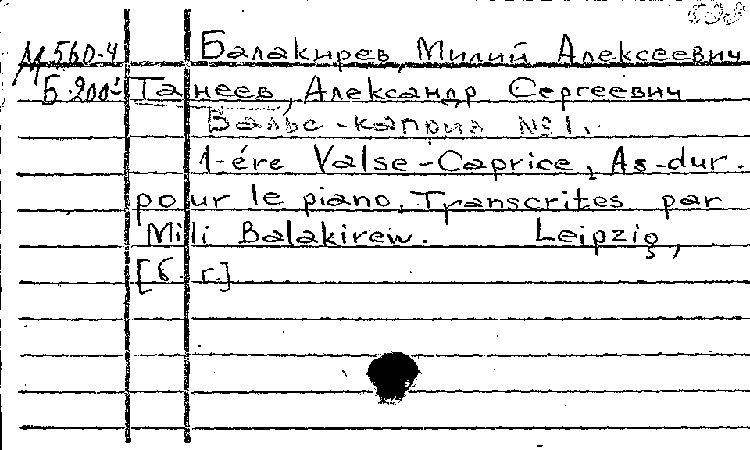 М 560-4 Балакирев, Милий Алексеевич
Б. 200 Танеев, Александр Сергеевич
Вальс-каприз № 1.
1-ére Valse-Caprice, As-dur.
pour le piano. Transcrites par
Mili Balakirew. Leipzig,
[б. г.]